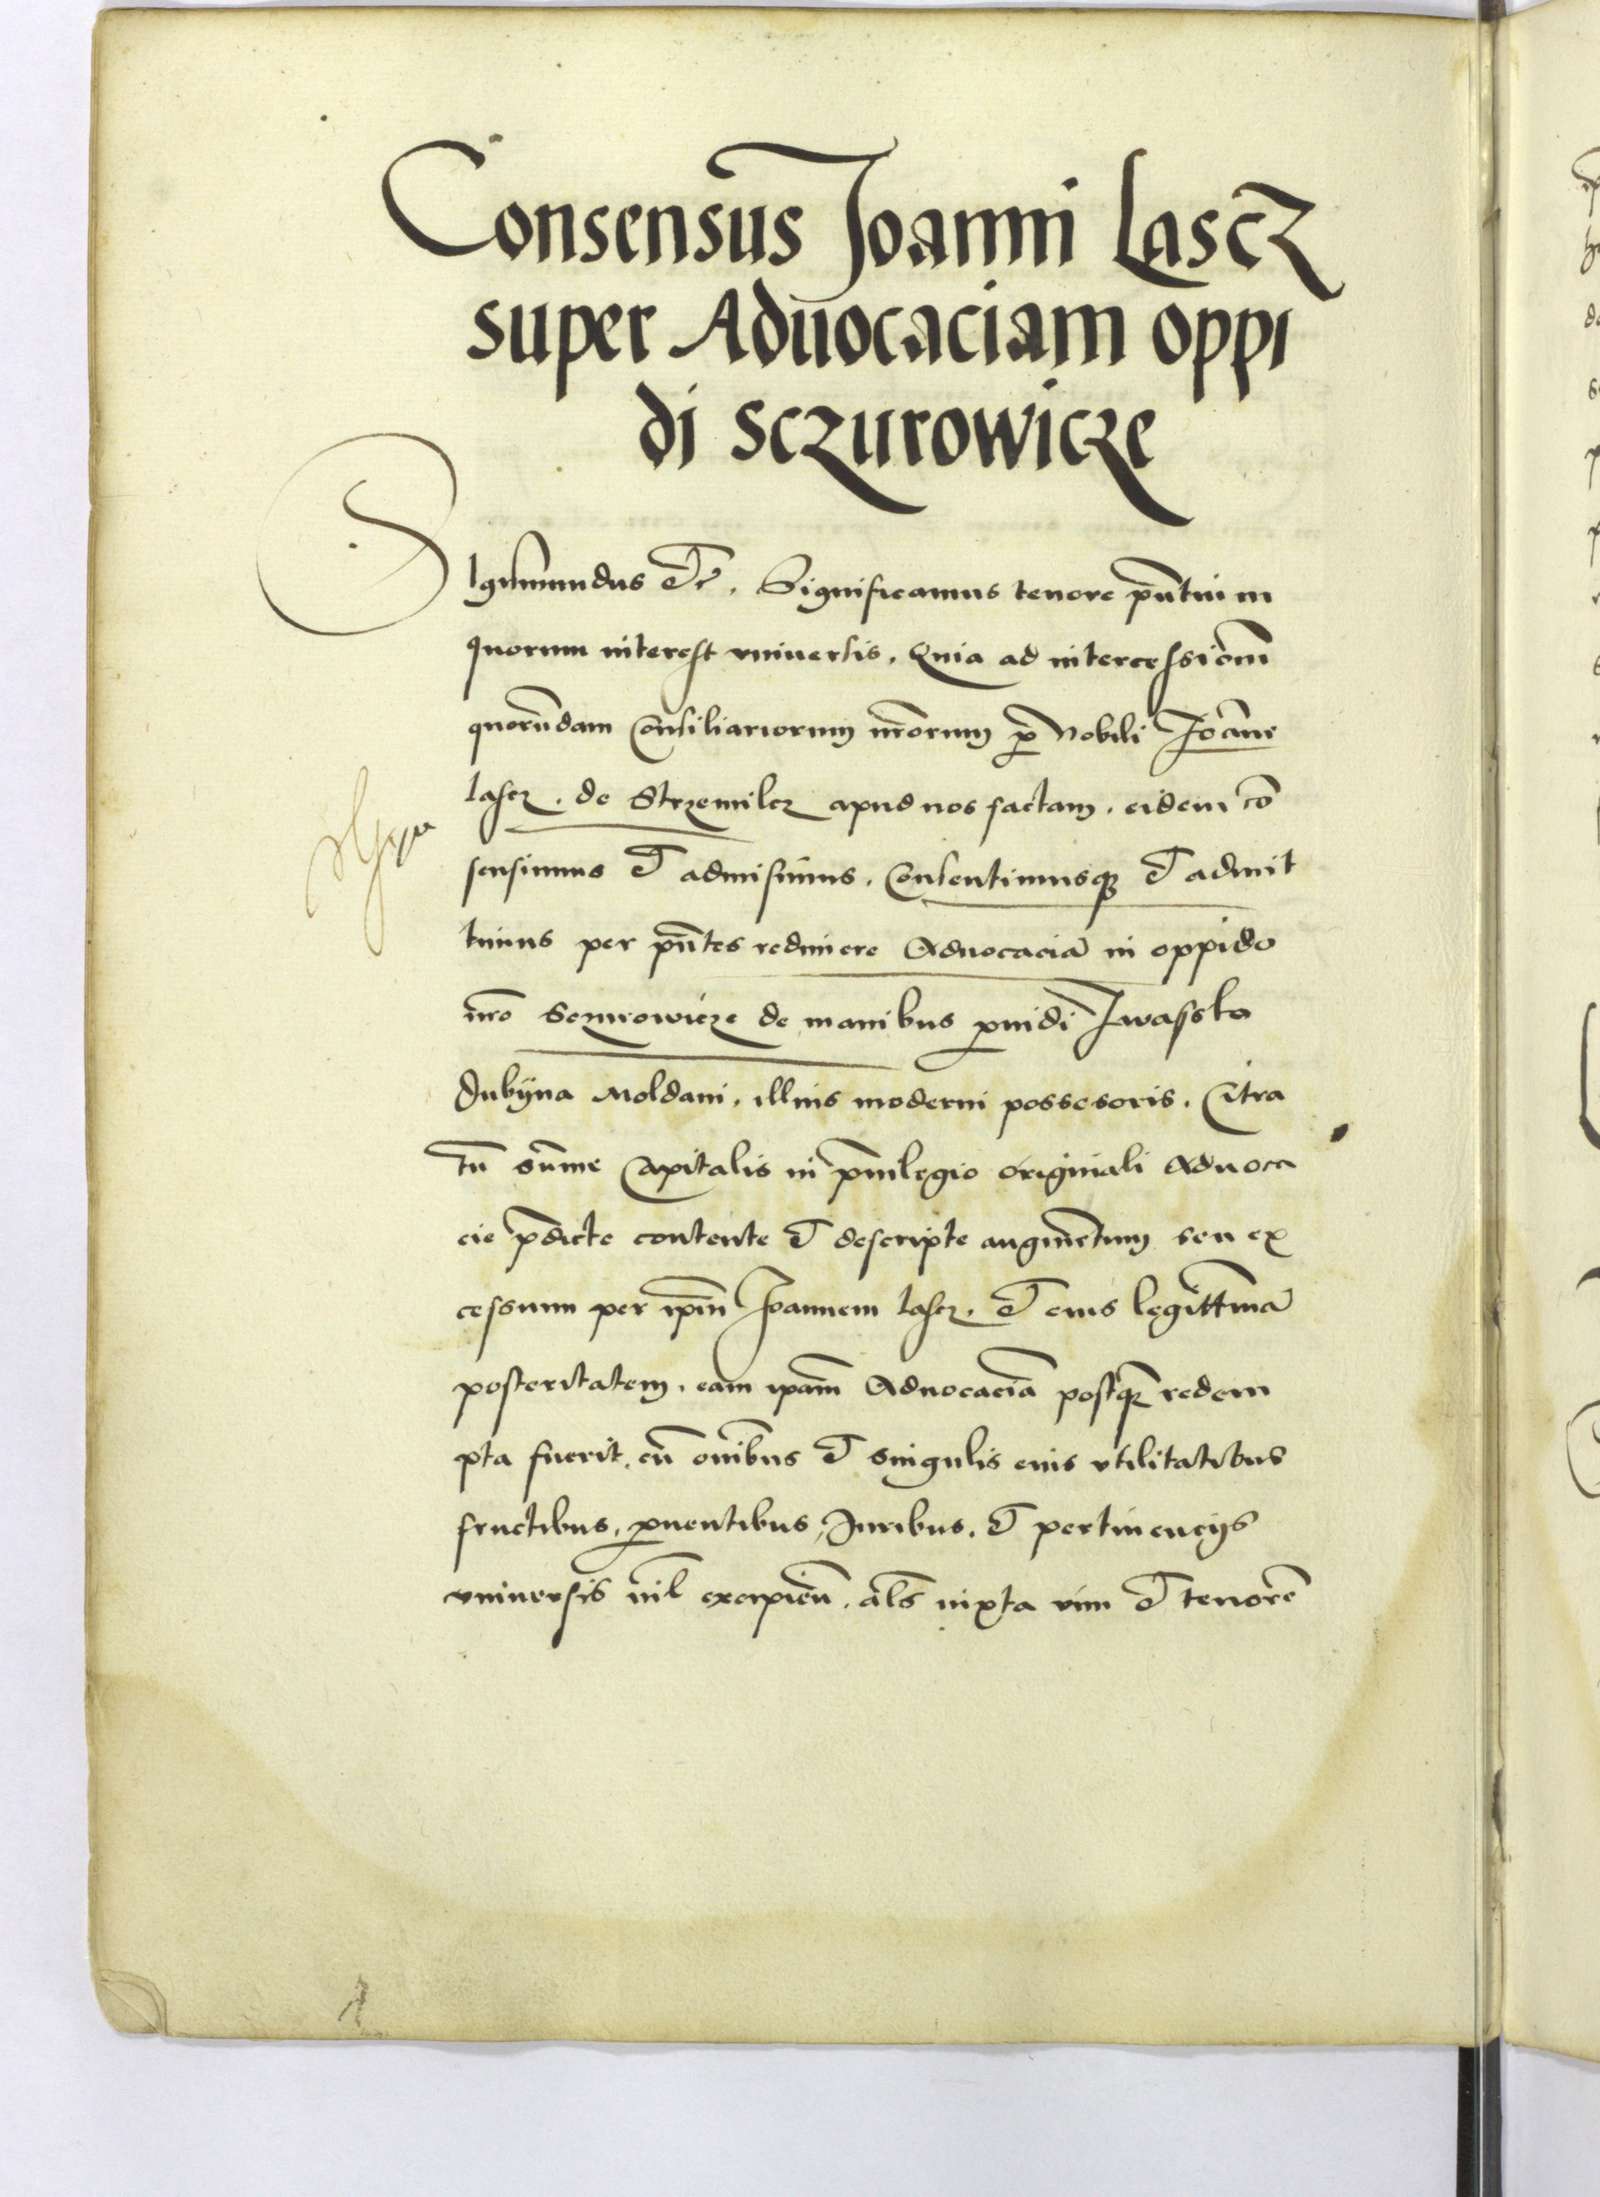 Consensus Joanni Lascz
super Aduocaciam oppi
di Sczurowicze
Sigismundus Etc̄. Significamus tenore p̄ntium
quorum interest vniuersis. Quia ad intercessionē
quorūdam Consiliariorum nr̄orum p̄ Nobili Joāne
Lascz. de Strzemilcz apud nos factam. eidem cō
sensimus Et admisimus. Consentimusq̄ Et admit
timus per p̄ntes redimere Aduocaciā in oppido
nr̄o Sczurowicze de manibus ꝓuidi Iwassko
Dubyna Moldaui. illius moderni possesoris. Citra
tn̄ sūme Capitalis in p̄uilegio originali Aduoca
cie p̄dicte contente Et descripte augmētum seu ex
cessum per ip̄m Joannem Lascz. Et eius legittimā
posteritatem. eam ip̄am Aduocaciā postq̄ redem
pta fuerit. cū om̄ibus Et singulis eius vtilitatibus
fructibus. ꝓuentibus. Juribus. Et pertinencijs
vniuersis nil excipien̄. al̄s iuxta vim Et tenorē